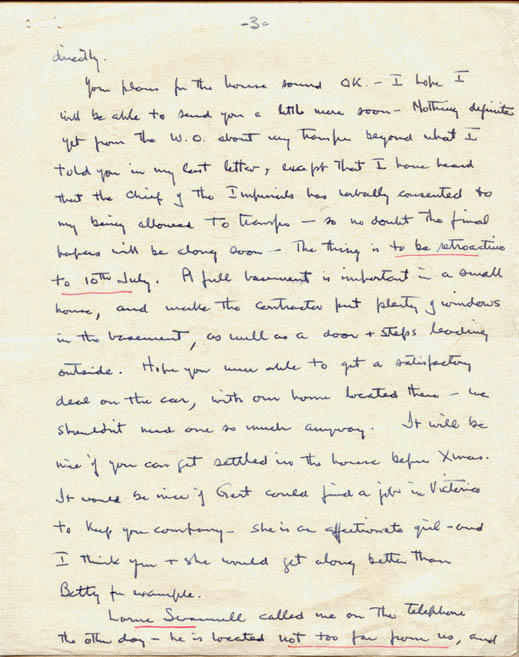 -3-
directly.
Your plans for the house sound OK. - I hope I
will be able to send you a little more soon - Nothing definite
yet from the W.O. about my transfer beyond what I
told you in my last letter, except that I have heard
that the Chief of the Imperials has verbally consented to
my being allowed to transfer - so no doubt the final
papers will be along soon - The thing is to be retroactive
to 10th July. A full basement is important in a small
house, and make the contractor put plenty of windows
in the basement, as well as a door + steps leading
outside. Hope you were able to get a satisfactory
deal on the car, with our home located there - we
shouldn't need one so much anyway. It will be
nice if you can get settled in the house before Xmas.
It would be nice if Gert could find a job in Victoria
to keep you company - she is an affectionate girl - and
I think you + she would get along better than
Betty for example.
Lorne called me on the telephone
the other day - he is located not too far from us, and